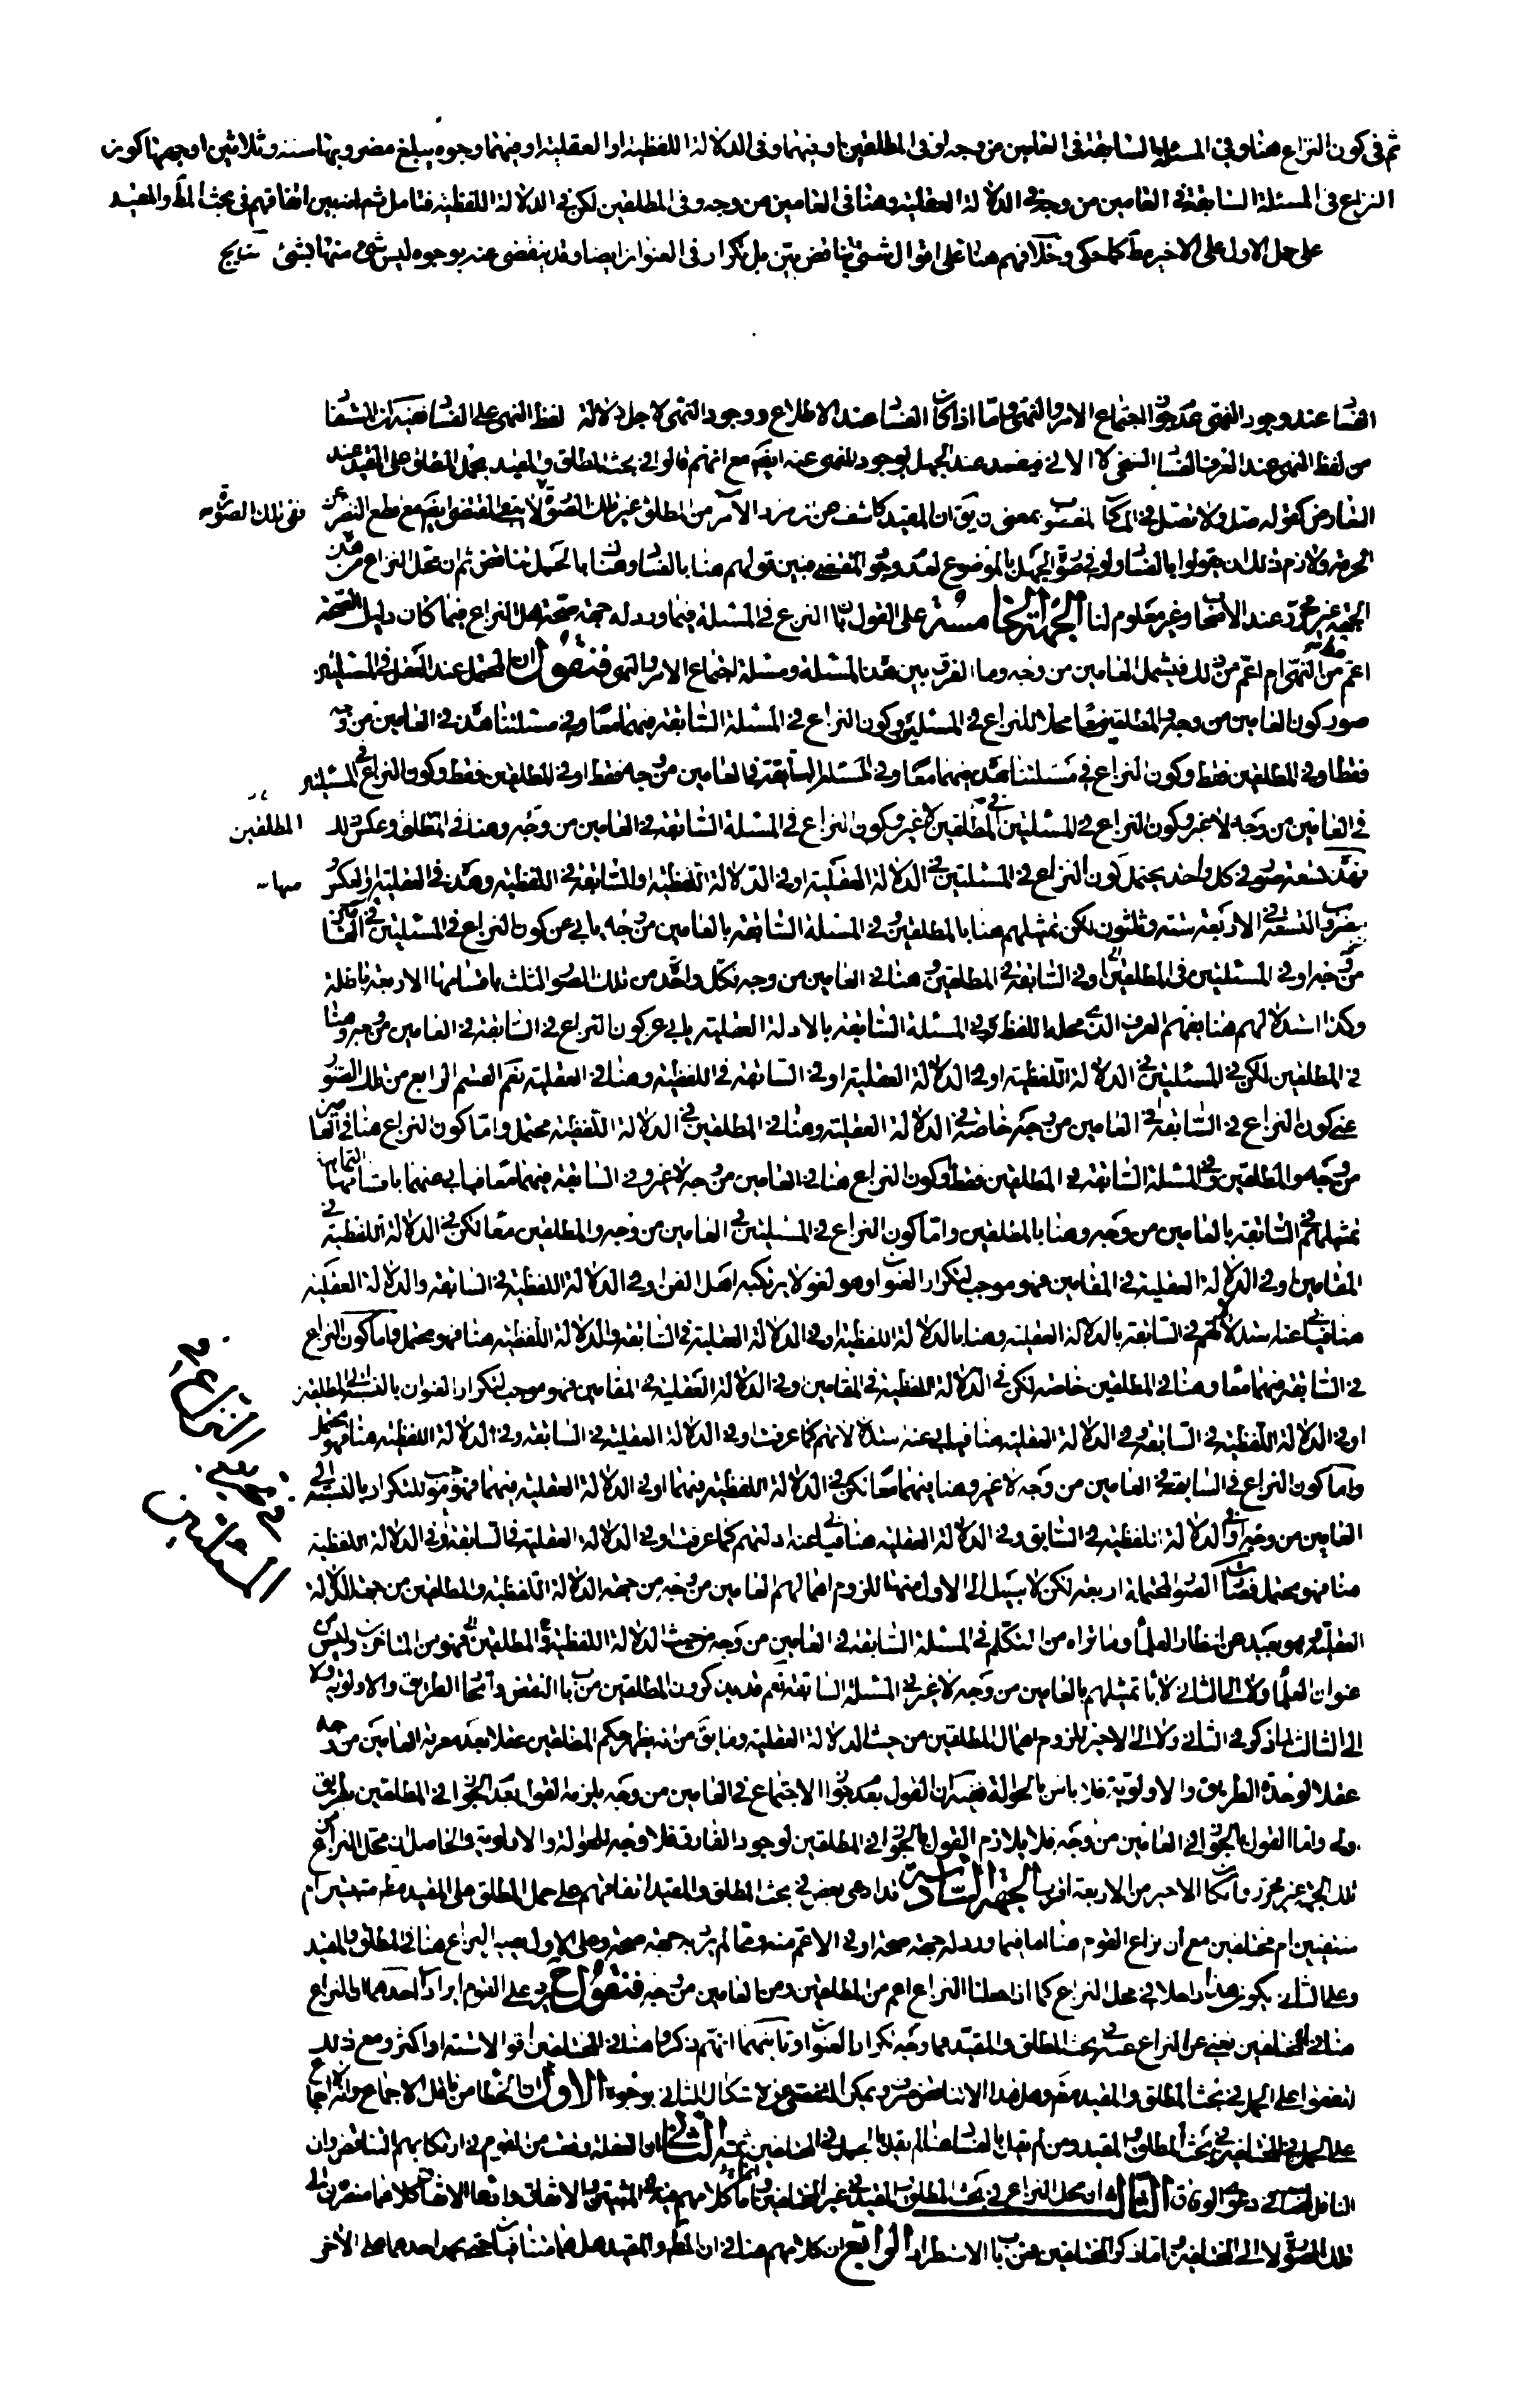 ثم فى كون النزاع هنا وفى المسئلة السابقة فى العامين من وجه او فى المطلقين او فيهما وفى الدلالة اللفظية او العقلية او فيهما وجوه يبلغ مضروبها ستة وثلاثين اوجهها كون
النزاع فى المسئلة السابقة فى العامين من وجه فى الدلالة العقلية وهنا فى العامين من وجه وفى المطلقين لكن فى الدلالة اللفظية فتامل ثم انه بين اتفاقهم فى بحث المط والمقيد
على حمل الاول على الاخير مط كما حكى وخلافهم هنا على اقوال شتى تناقض بين بل تكرار فى العنوان ايضا وقد يتفصى عنه بوجوه ليس شئ منها بشئ
الفسا عند وجود النهى عدم جواز اجتماع الامر والنهى واما اذا كان الفسا عند الاطلاع ووجود النهى لاجل دلالة لفظ النهى على الفسا ففيه ان المستفا
من لفظ النهى عند العرف الفسا النفى لا الا فيفسد عند الجهل بوجود المنهى عنه ايضا مع انهم قالوا فى بحث المطلق والمقيد بحمل المطلق على المقيد عند
التعارض كقوله صل ولا تصل فى المكا المغصوب بمعنى ان المقيد كاشف عن ان مراد الآمر من المطلق غير تلك الصورة لا يبقى المقتضى ايضا مع قطع النظر عن
نفى تلك الصورة
الحرمة ولازم ذلك ان يقولوا بالفسا ولو فى صورة الجهل بالموضوع لعدم وجود المقتضى فبين قولهم هنا بالفسا وهنا بالحمل تناقض ثم ان محل النزاع من هذه
الجهة غير محرر عند الاصحا وغير معلوم لنا الجهة الخامسة على القول بان النزاع فى المسئلة فيما ورد له جهة صحة هل النزاع فيما كان دليل الصحة
اعم من النهى ام اعم من ذلك فيشمل العامين من وجه وما الفرق بين هذه المسئلة ومسئلة اجتماع الامر والنهى فنقول ان المحتمل عند العقل فى المسئلتين
صور كون العامين من وجه والمطلقين معا محلا للنزاع فى المسئلتين وكون النزاع فى المسئلة السابقة فيهما معا وفى مسئلتنا هذه فى العامين من وجه
فقط او فى المطلقين فقط وكون النزاع فى مسئلتنا هذه فيهما معا وفى المسئلة السابقة فى العامين من وجه فقط او فى المطلقين فقط وكون النزاع فى المسئلتين
فى العامين من وجه لا غير وكون النزاع فى المسئلتين فى المطلقين لا غير وكون النزاع فى المسئلة السابقة فى العامين من وجه وهنا فى المطلق وعكس ذلك
المطلقين
فهذه تسعة صور فى كل واحد يحتمل كون النزاع فى المسئلتين فى الدلالة العقلية او فى الدلالة اللفظية او السابقة فى اللفظية وهذه فى العقلية او العكس
منها
يضرب التسعة فى الاربعة ستة وثلثون لكن تمثيلهم هنا بالمطلقين وفى المسئلة السابقة بالعامين من وجه يابى عن كون النزاع فى المسئلتين فى العامين
من وجه او فى المسئلتين فى المطلقين او فى السابقة فى المطلقين وهنا فى العامين من وجه فكل واحد من تلك الصور الثلث باقسامها الاربعة باطلة
وكذا استدلالهم هنا بفهم العرف الذى محله اللفظ وفى المسئلة السابقة بالادلة العقلية يابى عن كون النزاع فى السابقة فى العامين من وجه وهنا
فى المطلقين لكن فى المسئلتين فى الدلالة اللفظية او فى الدلالة العقلية او فى السابقة فى اللفظية وهنا فى العقلية نعم القسم الرابع من تلك الصور
عنى كون النزاع فى السابقة فى العامين من وجه خاصة فى الدلالة العقلية وهنا فى المطلقين فى الدلالة اللفظية محتمل واما كون النزاع هنا فى العامين
من وجه والمطلقين وفى المسئلة السابقة فى المطلقين فقط او كون النزاع هنا فى العامين من وجه لا غير وفى السابقة فيهما معا فيابى عنهما باقسامهما الثمانية
تمثيلهم فى السابقة بالعامين من وجه وهنا بالمطلقين واما كون النزاع فى المسئلتين فى العامين من وجه والمطلقين معا لكن فى الدلالة اللفظية فى
المقامين او فى الدلالة العقلية فى المقامين فهو موجب لتكرار العنوا وهو لغو لا يرتكبه اهل الفن او فى الدلالة اللفظية فى السابقة والدلالة العقلية
هنا فيابى عنه استدلالهم فى السابقة بالدلالة العقلية وهنا بالدلالة اللفظية او فى الدلالة العقلية فى السابقة والدلالة اللفظية هنا فهو محتمل واما كون النزاع
فى السابقة فيهما معا وهنا فى المطلقين خاصة لكن فى الدلالة اللفظية فى المقامين او فى الدلالة العقلية فى المقامين فهو موجب لتكرار العنوان بالنسبة الى المطلقين
او فى الدلالة اللفظية فى السابقة وفى الدلالة العقلية هنا فيابى عنه استدلالهم كما عرفت او فى الدلالة العقلية فى السابقة وفى الدلالة اللفظية هنا فهو محتمل
واما كون النزاع فى السابقة فى العامين من وجه لا غير وهنا فيهما معا لكن فى الدلالة اللفظية فيهما او فى الدلالة العقلية فيهما فهو موجب للتكرار بالنسبة الى
العامين من وجه او فى الدلالة اللفظية فى السابق وفى الدلالة العقلية هنا فيابى عنه ادلتهم كما عرفت او فى الدلالة العقلية فى السابقة وفى الدلالة اللفظية
هنا فهو محتمل فصارت الصور المحتملة اربعة لكن لا سبيل الى الاول منها للزوم اهمالهم العامين من وجه من جهة الدلالة اللفظية والمطلقين من جهة الدلالة
العقلية وهو بعيد عن انظار العلما وما تراه من التكلم فى المسئلة السابقة فى العامين من وجه من حيث الدلالة اللفظية وفى المطلقين فهو من المتاخرين وليس من
عنوان العلما ولا الى الثانى لاباء تمثيلهم بالعامين من وجه لا غير فى المسئلة السابقة نعم قد يذكرون المطلقين من باب النقض واتحا الطريق والاولوية ولا
الى الثالث لما ذكر فى الثانى ولا الى الاخير للزوم اهمال المطلقين من حيث الدلالة العقلية وما بق من انه يظهر حكم المطلقين عقلا بعد معرفة العامين من وجه
عقلا لوحدة الطريق والاولوية فلا باس بالحوالة ففيه ان القول بعدم جواز الاجتماع فى العامين من وجه يلزمه القول بعدم الجواز فى المطلقين بطريق
اولى واما القول بالجواز فى العامين من وجه فلا يلازم القول بالجواز فى المطلقين لوجود الفارق فلا وجه للحوالة والاولوية والحاصل ان محل النزاع من
تلك الجهة غير محرر وان كان الاخير من الاربعة اقرب الجهة السادسة قد ادعى بعض فى بحث المطلق والمقيد اتفاقهم على حمل المطلق على المقيد مط مثبتين ام
منفيين ام مختلفين مع ان نزاع القوم هنا اما فيما ورد له جهة صحة او فى الاعم منه ومما لم يرد به جهة صحة وعلى الاول يصير النزاع هنا فى المطلق والمقيد
وعلى الثانى يكون هذا داخلا فى محل النزاع كما اذا جعلنا النزاع اعم من المطلقين ومن العامين من وجه فنقول ح يرد على القوم ايرادان احدهما ان النزاع
هنا فى المختلفين يغنى عن النزاع عنه فى بحث المطلق والمقيد فما وجه تكرار العنوا وثانيهما انهم ذكروا هنا فى المختلفين اقوالا ستة او اكثر ومع ذلك
اتفقوا على الحمل فى بحث المطلق والمقيد مط وهل هذا الا تناقض صرف ويمكن التفصى عن الاشكال الثانى بوجوه الاول ان الخطا من ناقل الاجماع وانه لا اجماع
على الحمل فى المختلفين فى بحث المطلق والمقيد ومن لم يقل بالفسا هنا لم يقل بالحمل فى المختلفين ثمة الثانى ان الغفلة وقعت من القوم فى ارتكابهم التناقض وان
الناقل فى دعوى الوفاق الثالث ان محل النزاع فى بحث المطلق والمقيد فى غير المختلفين واما كلامهم فيه فى المثبتين والاتفاق واتحا الاتفا كلاهما منصرفان الى
تلك الصورة لا الى المختلفين واما ذكر المختلفين فمن باب الاستطراد الرابع ان كلامهم هنا فى ان المط والمقيد هل هما متنافيان فيخصص احدهما على الآخر
فى النزاع
فى معنى
المتنافيين